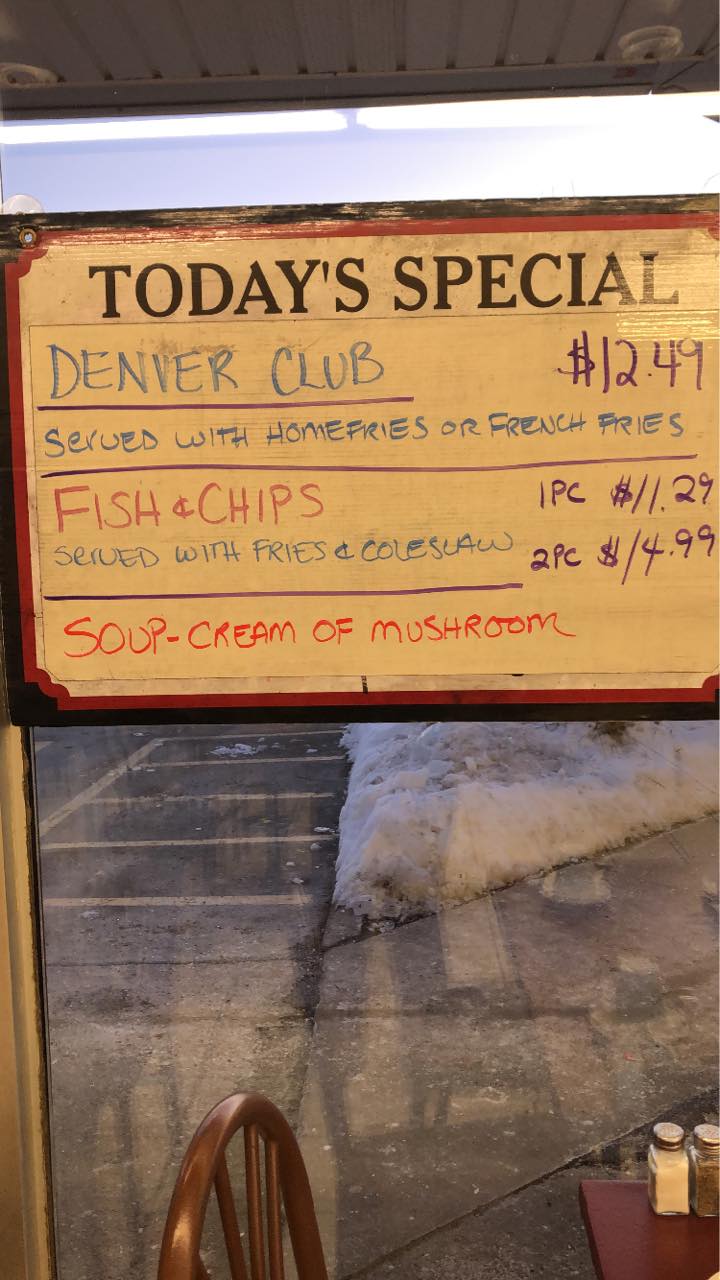 TODAY'S SPECIAL
DENVER CLUB $12.49
SERVED WITH HOMEFRIES OR FRENCH FRIES
FISH & CHIPS 1PC $11.29
SERVED WITH FRIES & COLESLAW 2PC $14.99
SOUP-CREAM OF MUSHROOM